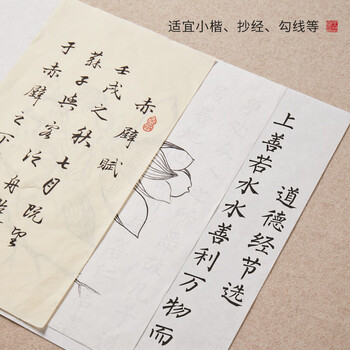 适宜小楷、抄经、勾线等
赤壁赋
壬戌之秋七月既望
蘇子與客泛舟
于赤壁之下
道德经节选
上善若水水善利万物而